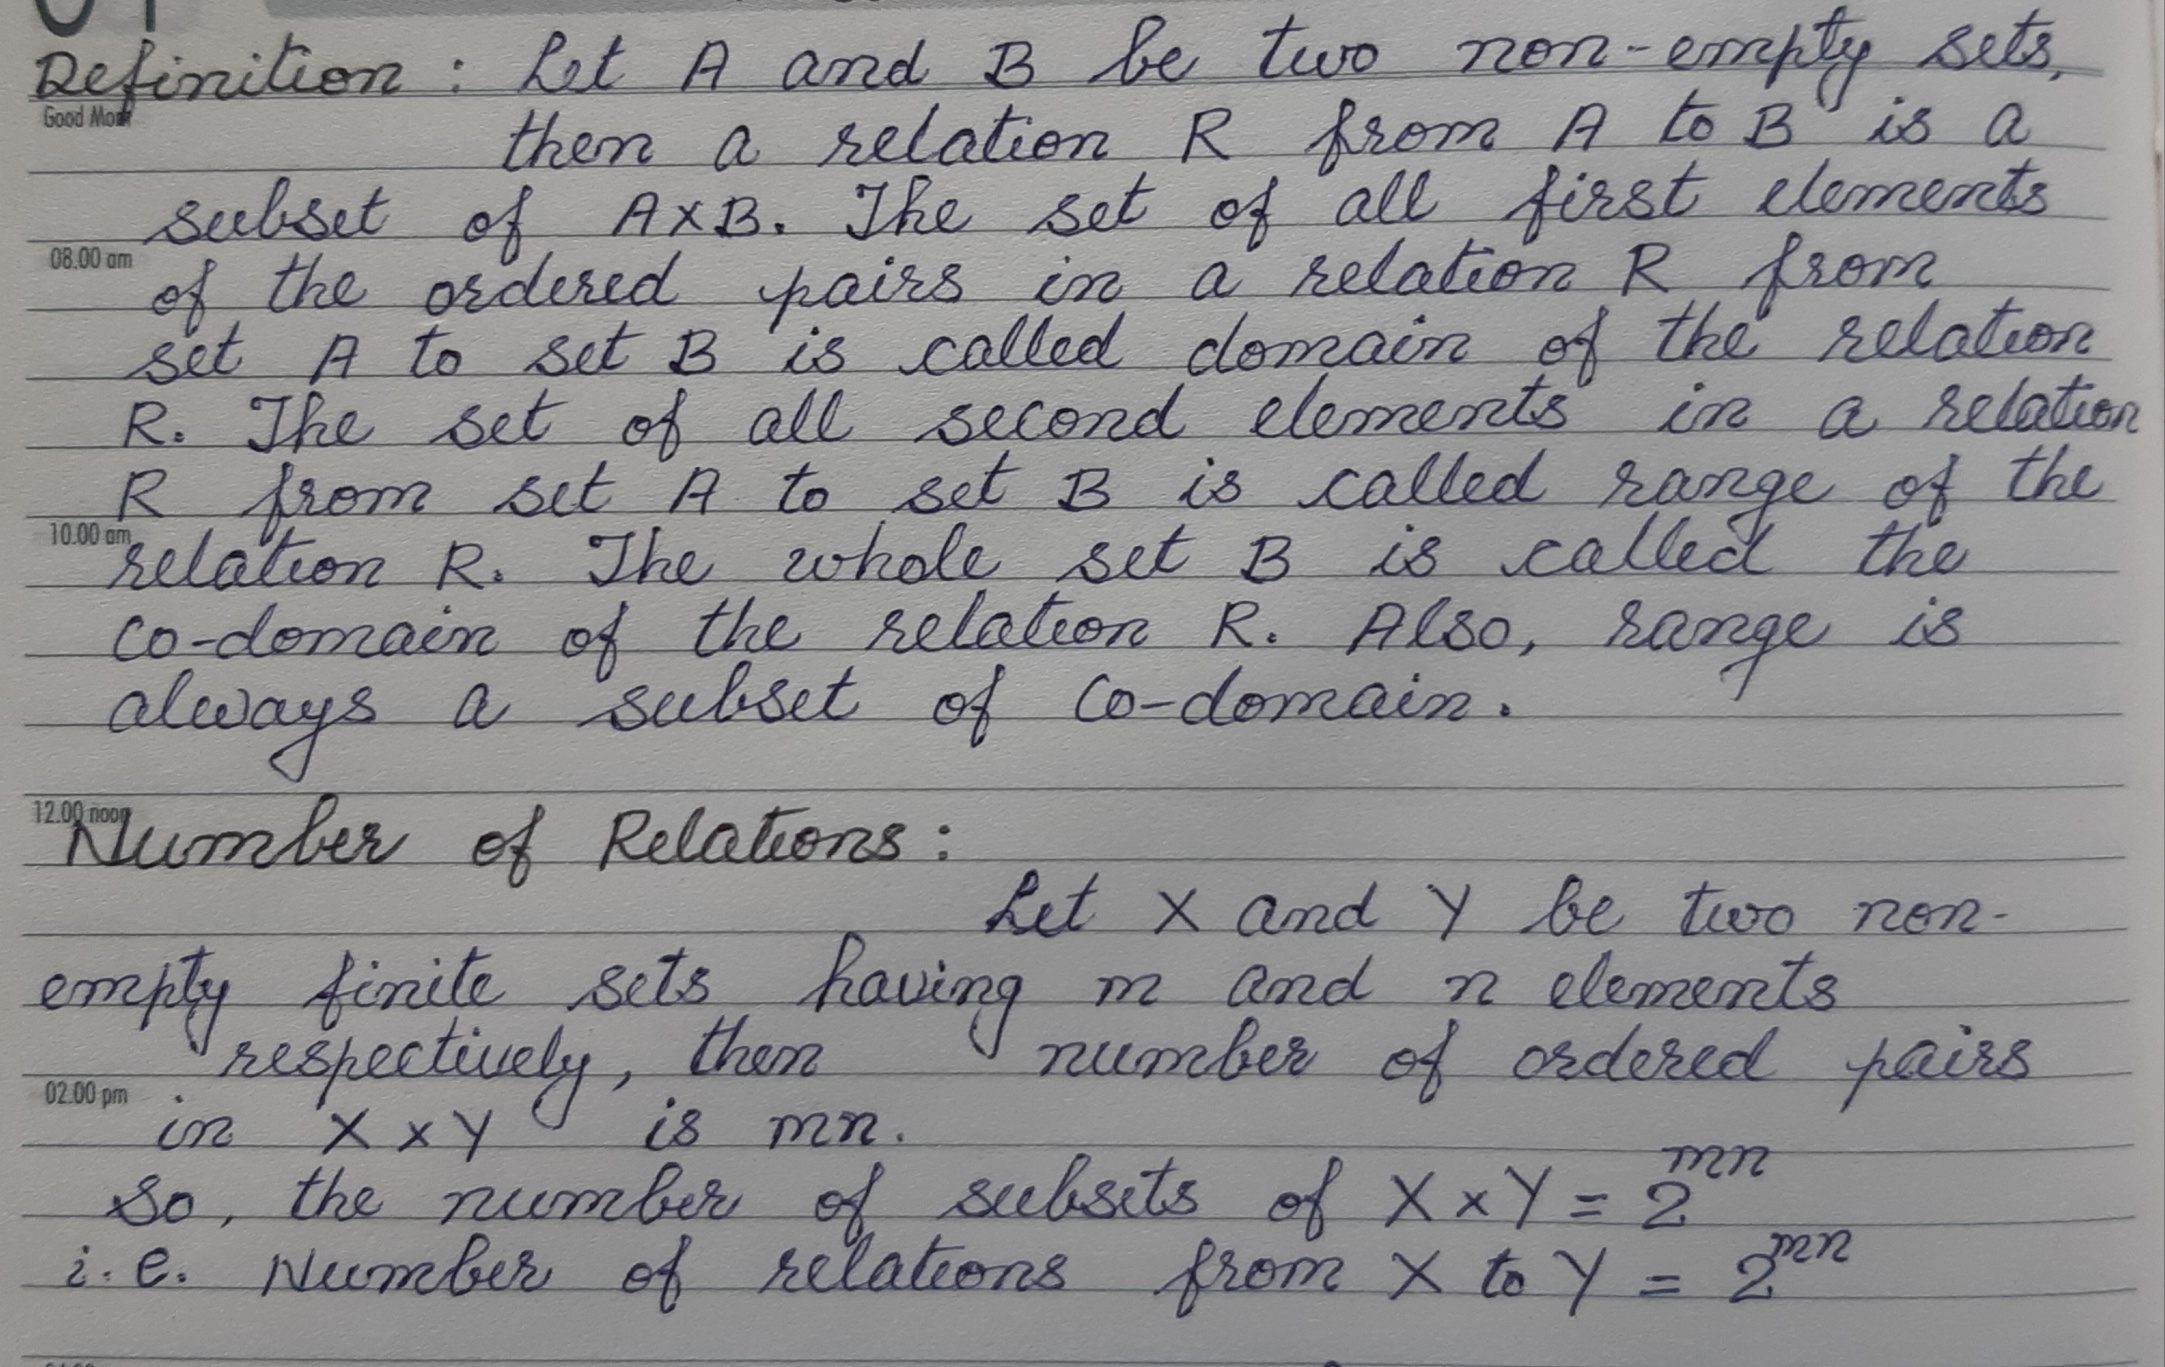 Definition : Let A and B be two non-empty sets,
Good Mor
then a relation R from A to B is a
subset of A×B. The set of all first elements
08.00 am
of the ordered pairs in a relation R from
set A to set B is called domain of the relation
R. The set of all second elements in a relation
R from set A to set B is called range of the
10.00 am
relation R. The whole set B is called the
co-domain of the relation R. Also, range is
always a subset of co-domain.
12.00 noon
Number of Relations :
Let X and Y be two non-
empty finite sets having m and n elements
respectively, then number of ordered pairs
02.00 pm
in X × Y is mn.
So, the number of subsets of X × Y = 2^mn
i.e. Number of relations from X to Y = 2^mn